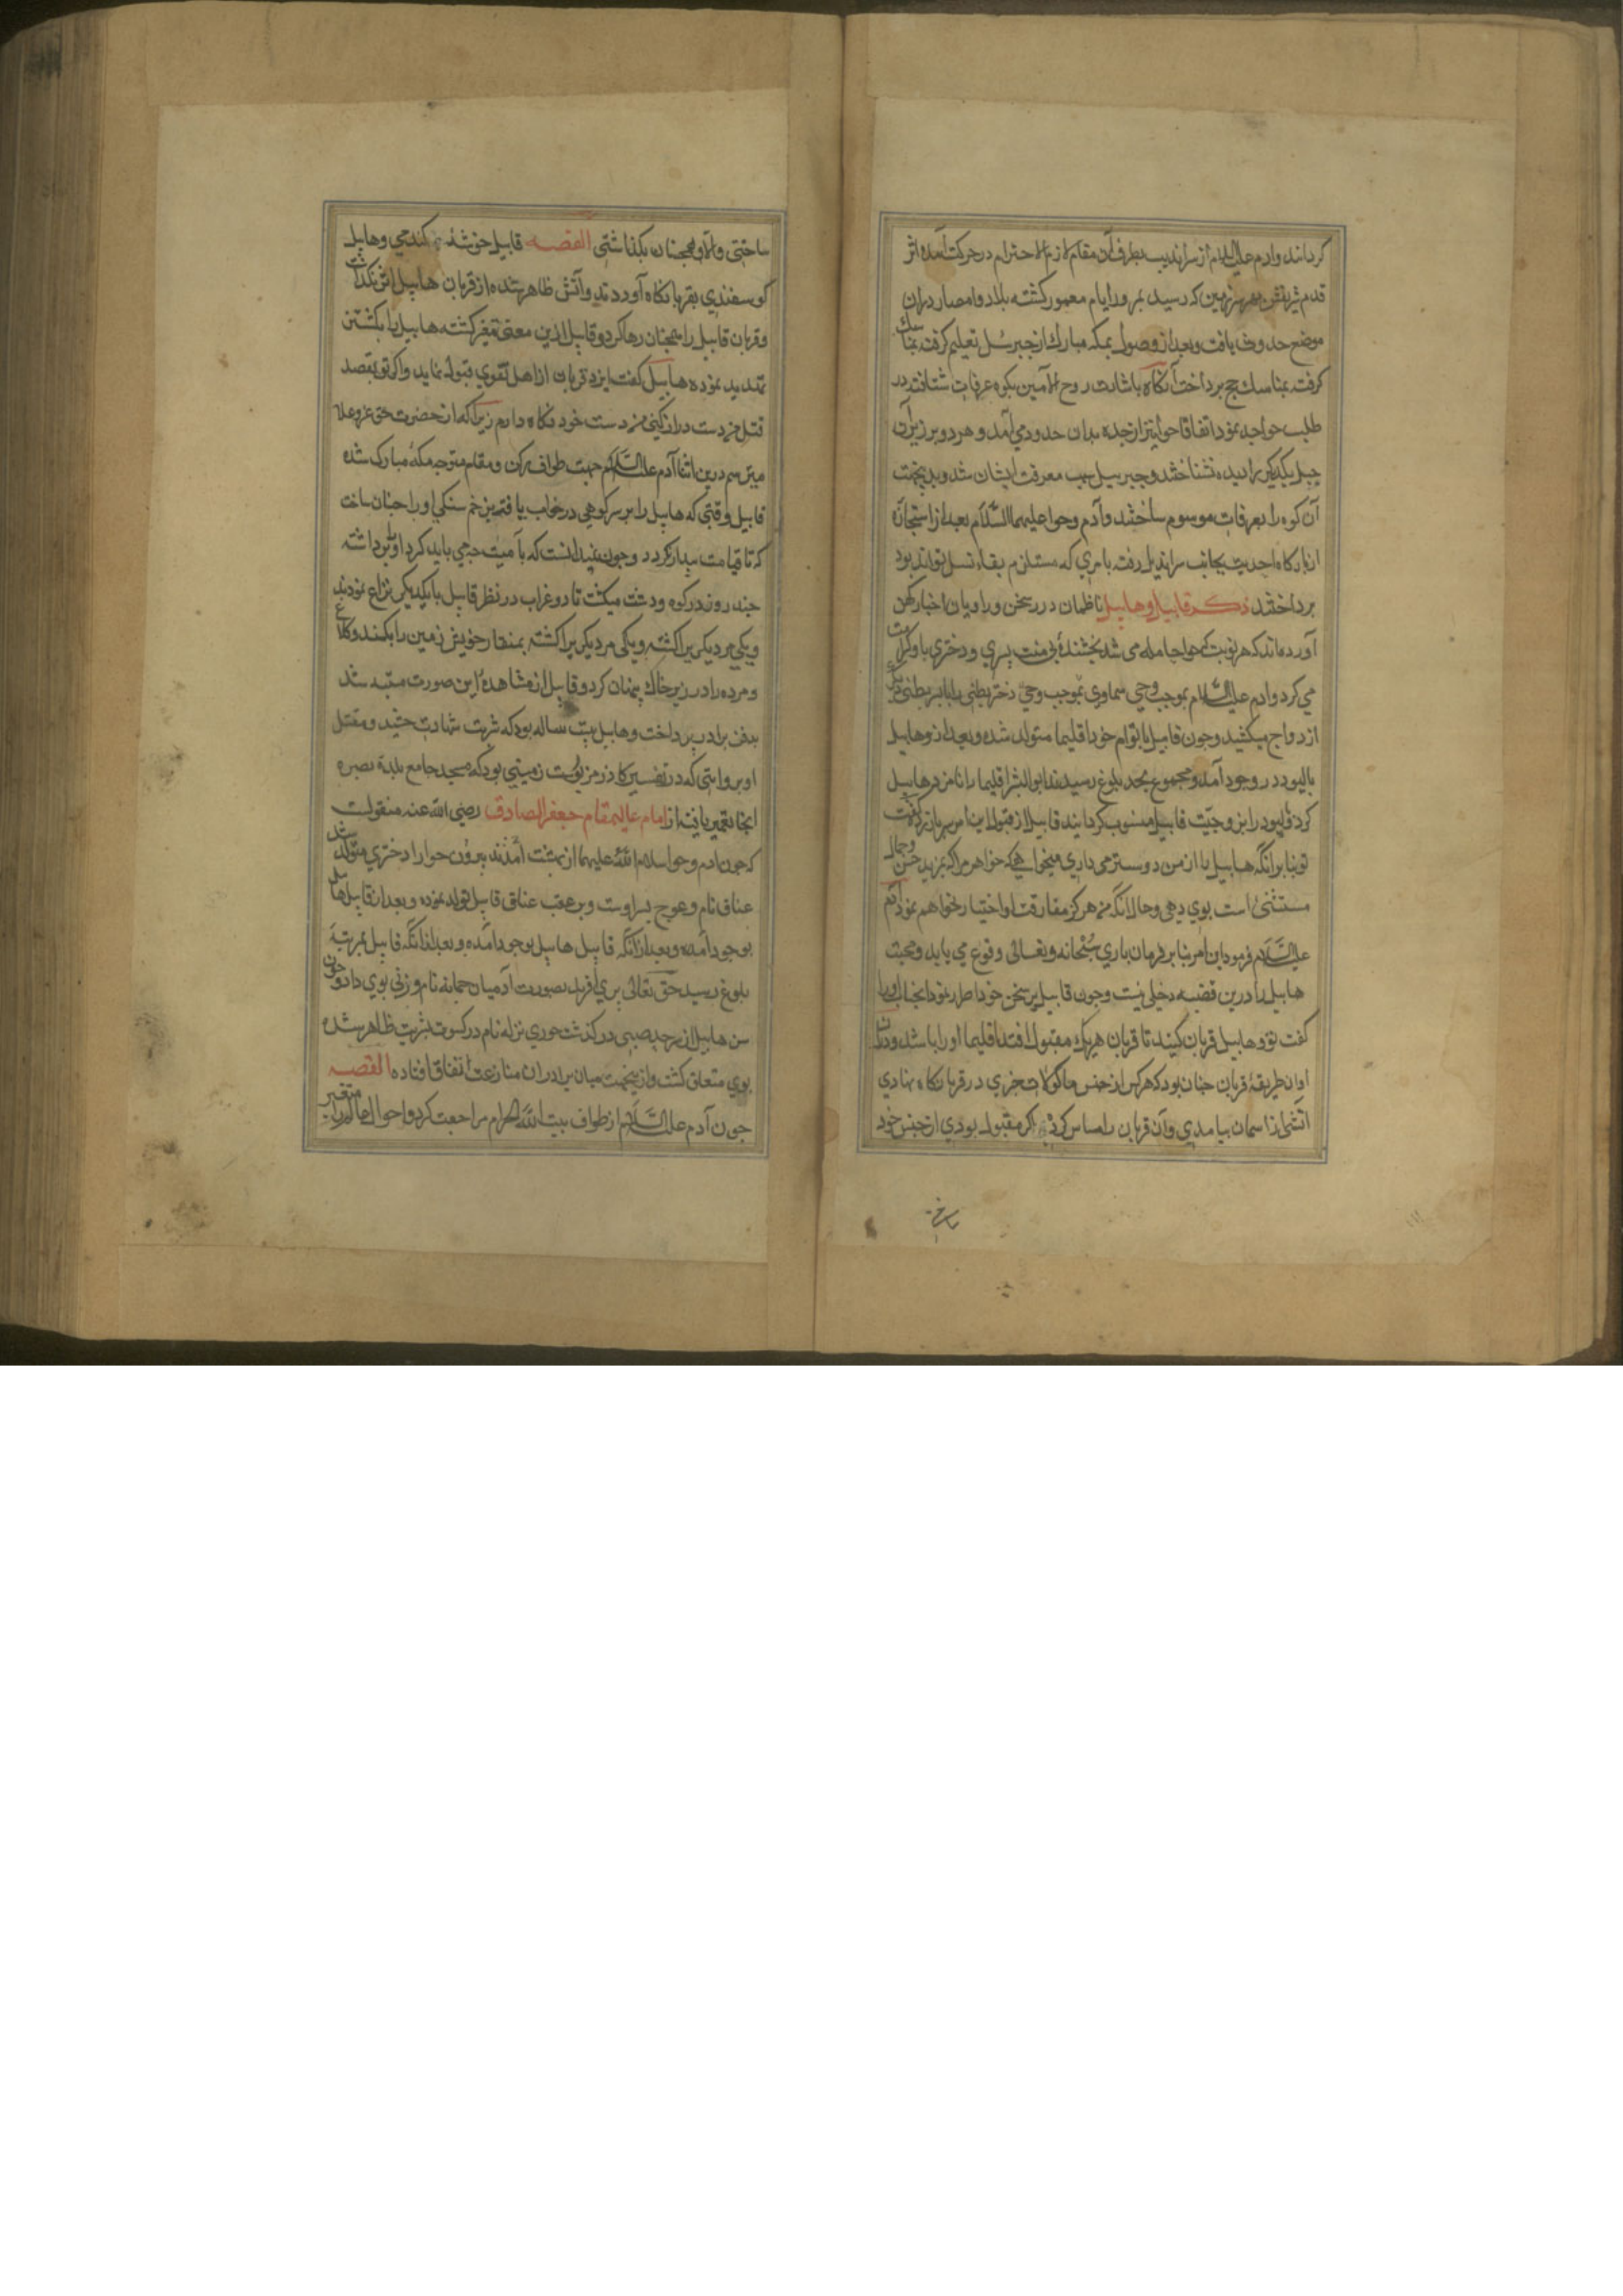 کردانند وادم علیه السلام از سراندیب بطرف آن مقام لازم الاحترام در حرکت آمده اثر
قدم شریفش بهر سرزمین که رسید بمرور ایام معمور کشته بلاد وامصار دران
موضع حدوث یافت وبعد از وصول بمکه مبارک از جبرئیل تعلیم کرفته مناسک
کرفته بمناسک حج برداخت آنکاه باشارت روح الامین بکوه عرفات شتافته در
طلب حوا جد نمود اتفاقا حوا نیز از جده بدان حدود می آمد و هر دو بر زبر آن
جبل یکدیکر را دیده نشناختند وجبرییل سبب معرفت ایشان شد وبدینجهت
آن کوه را بعرفات موسوم ساختند وآدم وحوا علیهما السلام بعد از استجازه
از بارکاه احدیت بجانب سراندیل رفته بامری که مستلزم بقاء نسل تواند بود
برداختند ذکر قابیل وهابیل ناظمان درر سخن وراویان اخبار کهن
آورده اند که هر نوبت که حوا حامله می شد بخشندۀ بی منت پسری ودختری باو کرامت
می کرد وادم علیه السلام بموجب وحی سماوی بموجب وحی دختر بطنی را با پسر بطنی دیکر
ازدواج میکشید وجون قابیل با توام خود اقلیما متولد شده وبعد از و هابیل
با لیودد در وجود آمد ومجموع بحد بلوغ رسیدند ابوالبشر اقلیما را نامزد هابیل
کرد ولیود را بزوجیت قابیل منسوب کردانید قابیل از قبول این امر سر باز زد وکفت
تو بنا برانکه هابیل را از من دوستر می داری میخواهی که خواهر مرا که بمزید حسن وجمال
مستثنی است بوی دهی وحال انکه من هرکز مفارقت او اختیار نخواهم نمود آدم
علیه السلام فرمود این امر بنا بر فرمان باری سبحانه وتعالی وقوع می یابد ومحبت
هابیل را درین قضیه دخلی نیست وجون قابیل بر سخن خود اصرار نمود انجناب او را
کفت تو وهابیل قربان کنید تا قربان هریک مقبول افتد اقلیما او را باشد ودران
اوان طریقۀ قربان جنان بود که هرکس از جنس ماکولات جیزی در قربانکاه نهادی
اتشی از اسمان بیامدی وآن قربان را مساس کردی اکر مقبول بودی از جنس خود
ساختی والا همجنان بکذاشتی القصه قابیل خوشۀ کندمی وهابیل
کوسفندی بقربانکاه آوردند وآتش ظاهر شده از قربان هابیل اثر نکذاشت
وقربان قابیل را همجنان رها کرد وقابیل ازین معنی متغیر کشته هابیل را بکشتن
تهدید نموده هابیل کفت ایزد قربان از اهل تقوی قبول نماید واکر تو بقصد
قتل من دست دراز کنی من دست خود نکاه دارم زیرا که از حضرت حق عز وعلا
میترسم درین اثنا آدم علیه السلام جهت طواف رکن ومقام متوجه مکه مبارک شده
قابیل وقتی که هابیل را بر سر کوهی در خواب یافته بزخم سنکی او را جنان ساخت
که تا قیامت بیدار نکردد وجون نمیدانست که با میت جه می باید کرد او را برداشته
جند روز در کوه ودشت میکشت تا دو غراب در نظر قابیل با یکدیکر نزاع نمودند
ویکی مر دیکری را کشته ویکی مر دیکری را کشته بمنقار خویش زمین را بکند وکلاغ
مرده را در زیر خاک پنهان کرد وقابیل از مشاهدۀ این صورت متنبه شد
بدفن برادر برداخت وهابیل بیست ساله بود که شربت شهادت جشید ومقتل
او بروایتی که در تفسیر کازر مزبورست زمینی بود که مسجد جامع بلده بصره
انجا تعمیر یافته از امام عالیمقام جعفر الصادق رضی الله عنه منقولست
که جون ادم وحوا سلام الله علیهما از بهشت آمدند بیرون حوا را دختری متولد شد
عناق نام وعوج پسر اوست وبر عقب عناق قابیل تولد نموده وبعد از قابیل هابیل
بوجود آمده وبعد ازانکه قابیل هابیل بوجود آمده وبعد ازانکه قابیل بمرتبۀ
بلوغ رسید حق تعالی پری آفریده بصورت آدمیان جمانه نام وزنی بوی داد وجون
سن هابیل از مرحد صبی در کذشت حوری نزله نام در کسوت بشریت ظاهر شده
بوی متعلق کشت وازینجهت میان برادران منازعت اتفاق افتاده القصه
جون آدم علیه السلام از طواف بیت الله الحرام مراجعت کرد واحوال عالم را متغیر
ساختی